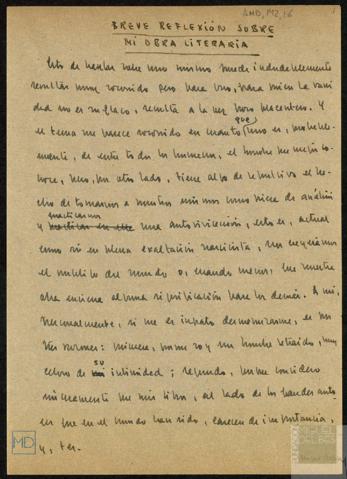 AMD, 142, 16
BREVE REFLEXIÓN SOBRE
MI OBRA LITERARIA
Esto de hablar sobre uno mismo puede indudablemente
resultar muy socorrido pero para uno, para quien la vani
dad no es su flaco, resulta a la vez poco placentero. Y
el tema me parece socorrido en cuanto que uno es, probable-
mente, de entre todos los hombres, el hombre que mejor co-
noce, pero, por otro lado, tiene algo de el he-
cho de tomarnos a nosotros mismos como pieza de análisis
y practicarnos una autovivisección, esto es, actuar
como si en plena exaltación narcisista, nos creyéramos
el ombligo del mundo o, cuando menos, que nuestra
obra encierra alguna significación para los demás. A mí,
personalmente, si me es ingrato desmenuzarme, es por
tres razones: primera, porque soy un hombre retraído, muy
celoso de su intimidad; segundo, porque considero
sinceramente que mis libros, al lado de los grandes auto
res que en el mundo han sido, carecen de importancia,
y, ter-
MD
FUNDACIÓN
MIGUEL
DELIBES